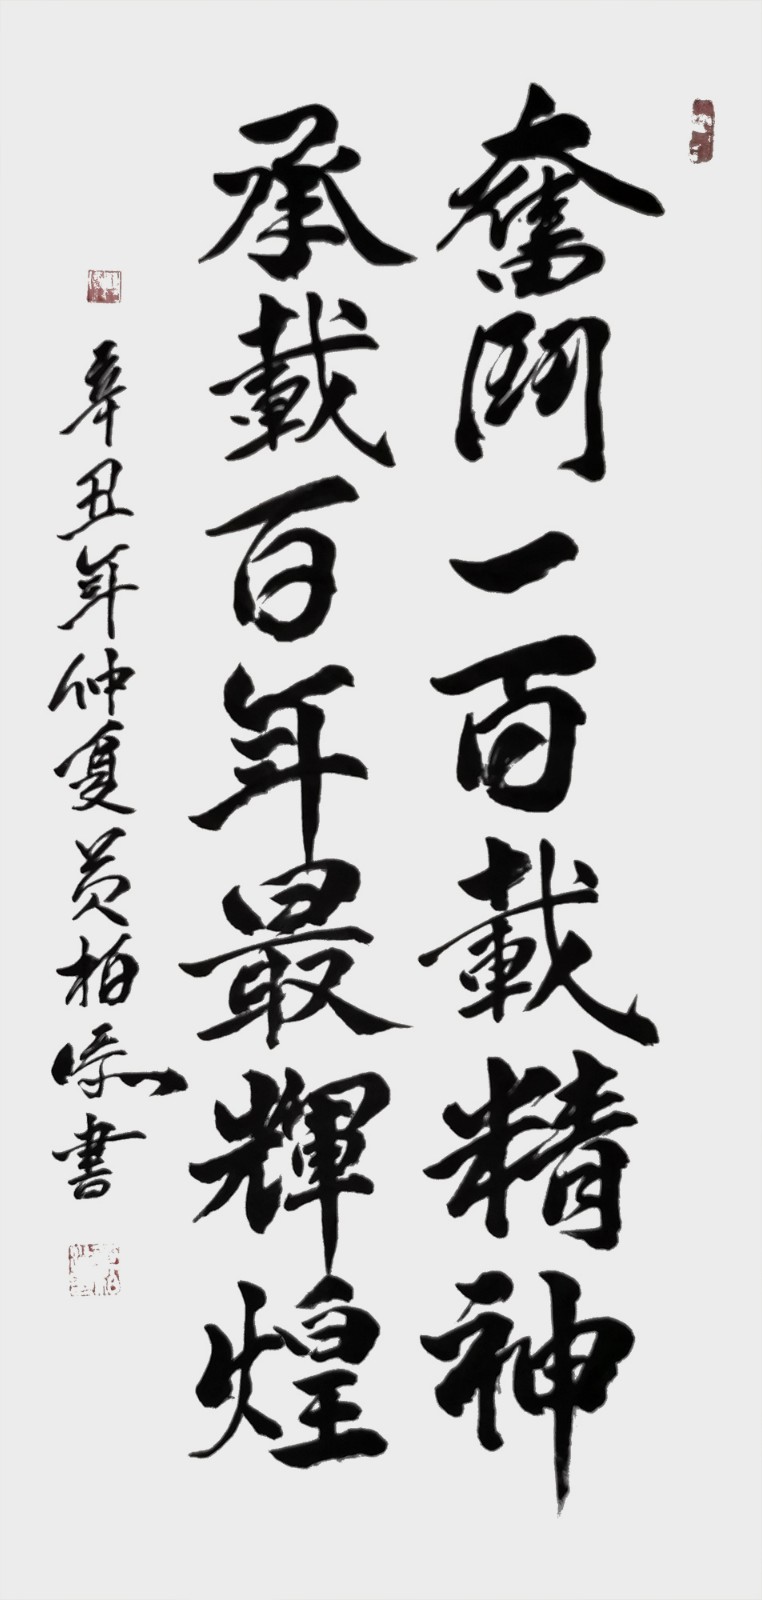 奮鬥一百載精神
承載百年最輝煌
辛丑年仲夏黄柏添書